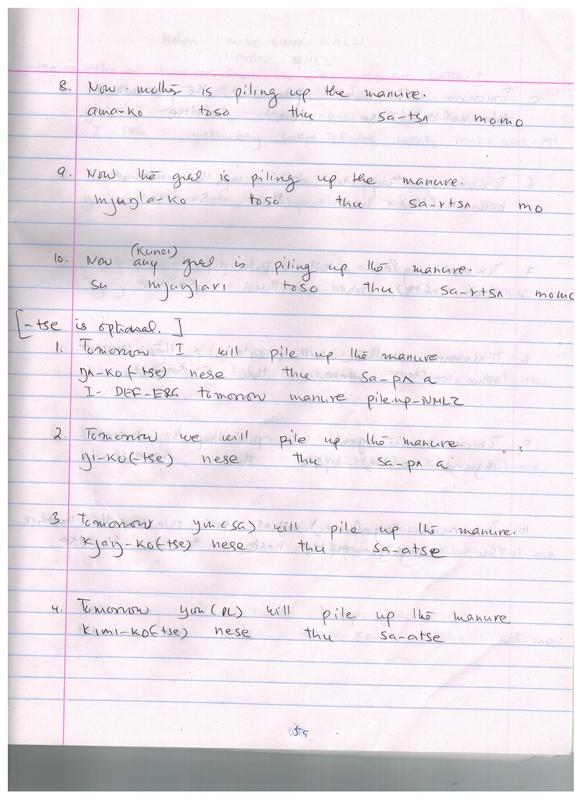 8. Now mother is piling up the manure.
ama-ko toso thu sa-tsʌ momo
9. Now the girl is piling up the manure.
mjuŋla-ko toso thu sa-r+sʌ mo
10. Now (Kunci) any girl is piling up the manure.
su mjuŋları toso thu sa-r+sʌ momo
[-tse is optional.]
1. Tomorrow I will pile up the manure
ŋʌ-ko(-tse) nese thu sa-pʌ a
I-DEF-ERG tomorrow manure pile.up-NMLZ
2. Tomorrow we will pile up the manure
ŋi-ko(-tse) nese thu sa-pʌ a
3. Tomorrow you (SG) will pile up the manure.
kjaŋ-ko(-tse) nese thu sa-atse
4. Tomorrow you (PL) will pile up the manure
kimi-ko(-tse) nese thu sa-atse